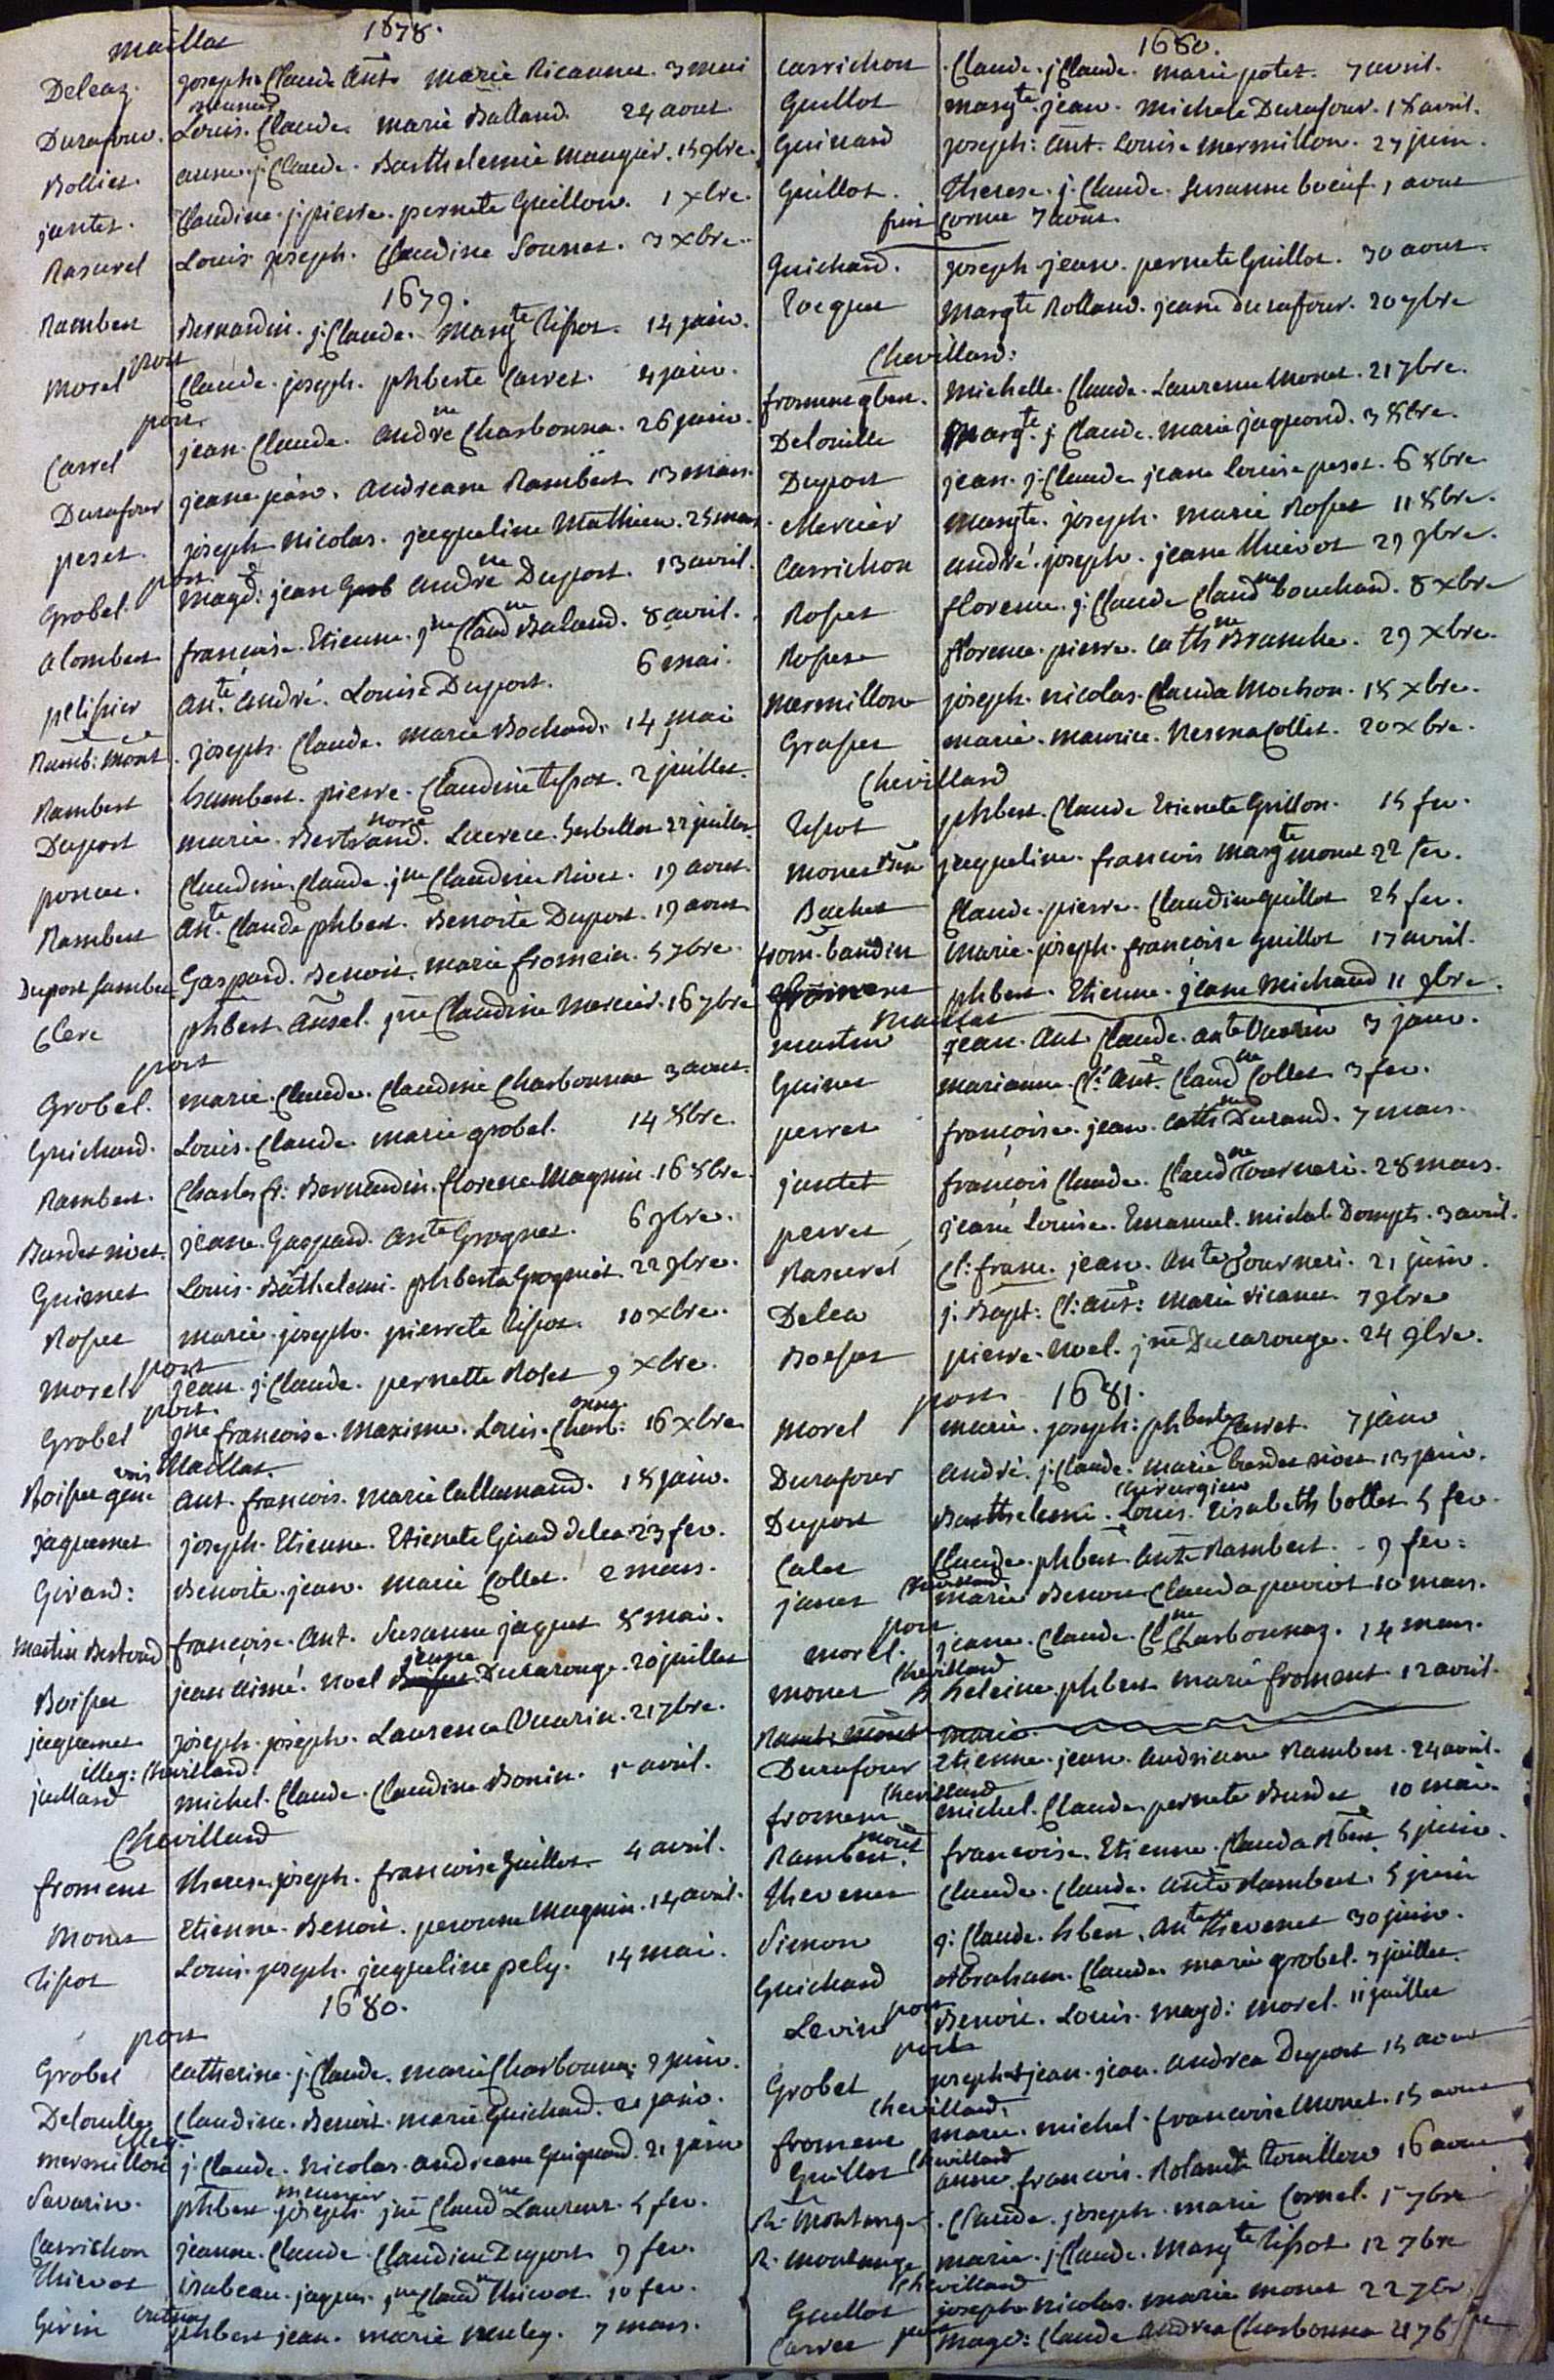 1678.
maillat
Deleaz. joseph. Claude Ant. marie Ricanner. 3 mai
meunier
Durafour. Louis. Claude. marie Balland. 24 aout
Bollict. anne. j. Claude. Barthelemie Maugier. 15 9bre.
jantet. Claudine. j. pierre. pernete Guillon. 1 xbre.
Rasurel Louis joseph. Claudine Sonnet. 3 xbre.
1679.
Rambert Bernardin. j. Claude. Margte Tissot. 14 janv.
Morel port Claude. joseph. phberte Carret. 4 janv.
port
Carrel jean. Claude. andréne Charbonna. 26 janv.
Durafour jeane jean. andreane Rambert 13 mars.
peset. joseph nicolas. jacqueline Mathieu. 25 mars
Grobel. port magd: jean andrene Duport. 13 avril.
Alombert francoise. Etienne. jne Claud Baland. 8 avril.
pelissier Ante. André. Louise Duport. 6 mai.
Ramb: mont. joseph. Claude. marie Bochard. 14 mai
Rambert humbert. pierre. Claudine tissot. 2 juillet.
Duport marie. Bertrand. Lucrece. herbellot 22 juillet.
poncet. Claudine. Claude. jne Claudine Rivet. 19 aout.
Rambert Ante. Claude phbert. Benoite Duport. 19 aout
Duport Gaspard. Benoit. marie fromein. 5 7bre.
Clerc phbert. Ansel. jne Claudine mercier. 16 7bre
port
Grobel. marie. Claude. Claudine Charbonna 3 aout.
Guichard. Louis. Claude. marie grobel. 14 8bre.
Rambert. Charles fr: Bernardin. florence Magnin. 16 8bre.
Burdet nivet. jeane. Gaspard. Ante Grognet. 6 9bre.
Guinet Louis. Bathelemi. phberte Grognet 22 9bre.
Rosset marie. joseph. pierrete Tissot. 10 xbre.
Morel port jean. j. Claude. pernette Roset 9 xbre.
port
Grobel jne francoise. Maxime. Louis. Charb: 16 xbre
Maillat.
Boisset Ant. francois. Marie Callamand. 18 janv.
jaquemet joseph. Etienne. Etienete Girod delea 23 fev.
Girard: Benoite. jean. Marie Collet. 2 mars.
Martin Bertrand francoise. Ant. Susanne jaquet 8 mai.
Boisset jean aimé. Noel jeane Ducarouge. 20 juillet
jaquemet joseph. joseph. Laurence Vuarin. 21 7bre.
illeg: Chevillard
juillard michel. Claude. Claudine Bonin. 1r avril.
Chevillard
froment therese joseph. francoise Guillot. 4 avril.
Monet Etienne. Benoit. peronne Magnin. 14 avril.
Tissot Louis. joseph. jacqueline pely. 14 mai.
1680.
port
Grobel Catherine. j. Claude. marie Charbonna. 9 janv.
Delorullez Claudine. Benoit. marie Guichard. 21 janv.
illeg.
mermillon j. Claude. Nicolas. andreane Guignard. 21 janv
meunier
Savarin. phbert joseph. jne Claudne Laurent. 5 fev.
Carrichon jeanne. Claude. Claudine Duport. 9 fev.
Thievot isabeau. jaques. jne Claudne Thievot. 10 fev.
Girin phbert jean. marie neuley. 7 mars.
1680.
Carrichon Claude. j Claude. marie potet. 7 avril.
Guillot margte. jean. michele Durafour. 18 avril.
Guinard joseph: Ant. Louise mermillon. 27 juin.
Guillot. Therese. j. Claude. Susanne boeuf. 1 aout
fuit Cornu 7 aout.
Guichard. joseph jean. pernete Guillot. 30 aout.
Tocquet Margte Rolland. jeane durafour. 20 7bre
Chevillard:
Michelle. Claude. Laurence Monet. 21 7bre.
Delouille Margte. j Claude. marie jaquond. 3 8bre.
Duport jean. j. Claude jeane louise peset. 6 8bre
Mercier Margte. joseph. marie Rosset 11 8bre.
Carrichon andré. joseph. jeane thievot 29 9bre.
Rosset florence. j. Claude Claudne bouchard. 8 xbre
Rosset florence. pierre. Cathne Branche. 29 xbre.
Mermillon joseph. nicolas. Clauda Mochon. 18 xbre.
Grosset marie. maurice. Nesma Collet. 20 xbre.
Chevillard
Tissot phbert. Claude Etienete Guillon. 15 fev.
Monet Ben jacqueline. francois Margte monet 22 fev.
Bachet Claude. pierre. Claudine guillot 25 fev.
from. baudin marie. joseph. francoise guillot 17 avril.
phbert. Etienne. jeane Michaud 11 9bre.
Maillat
martin jean. Ant Claude. ante Vuarin 3 janv.
Guinet marianne. Cl: Ant. Claudne Collet 3 fev.
perret francoise. jean. Cathne Durand. 7 mars.
jantet francois Claude. Claudne Tournari. 28 mars.
perret jeane Louise. Emanuel. michele Dompt. 3 avril.
Rasurel Cl: franc. jean. Ante Tourneri. 21 juin.
Delea j. Bapt: Cl: Ant: Marie ricanet 7 9bre
Boisset pierre. Noel. jne Ducarouge. 24 9bre.
port 1681.
Morel marie. joseph: phberte Carret. 7 janv
Durafour andré. j. Claude. Marie burdet nivet 13 janv.
chirurgien
Duport Barthelemi. Louis. Elisabeth bollet 5 fev.
Calet Claude. phbert Ante Rambert. 9 fev:
janet Chevillard marie Benoit Clauda perriot 10 mars.
port
morel. jeane. Claude. Clne Charbonnaz. 14 mars.
monet Chevillard heleine phbert marie froment 12 avril.
Ramb: Mont marie
Durafour Etienne. jean. andreane Rambert. 24 avril.
Chevillard
froment michel. Claude. pernete Burdet 10 mai.
Rambert. mont francoise. Etienne. Clauda Rbert 5 juin.
thevenet Claude. Claude. Ante Rambert. 5 juin
Simon j: Claude. hbert. Ante thevenet 30 juin.
Guichard Abraham. Claude. marie grobel. 3 juillet.
Levin port Benoit. Louis. Magd: Morel. 11 juillet
port
Grobel joseph jean. jean. Andrea Duport 15 aout
Chevillard.
froment marie. michel. francoise Monet. 15 aout
Guillot Chevillard anne. francois. Rolande touillon 16 aout
R. Montange. Claude. joseph. marie Cornel. 1r 7bre
R. Montange marie. j Claude. Margte tissot 12 7bre
Chevillard
Guillot joseph nicolas. marie monet 22 7br.
Carret port Magd: Claude Andrea Charbonna 21 7b